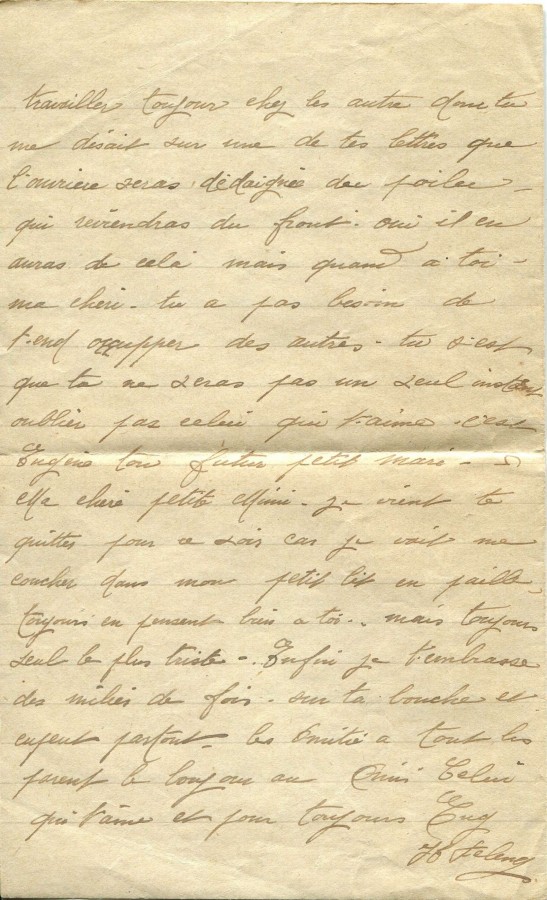 travailler toujour chez les autre dont tu
me désait sur une de tes lettres que
l'ouvriere seras dédaignée des poilu -
qui reviendras du front. oui il en
auras de celà mais quand a toi -
ma cheri - tu a pas besoin de
t'end occupper des autres - tu s'est
que ta ne seras pas un seul instant
oublier pas celui qui t'aime. c'est
Eugène ton futur petit mari -
Ma cheré petite Mimi - je vient te
quitter pour ce soir car je vait me
coucher dans mon petit lit en paille,
toujours en pensent bien a toi.. mais toujours
seul le plus triste -. Enfin je t'embrasse
des miliés de fois - sur ta bouche et
partout - les Amitié a tout les
parent le bonjour au Amis Celui
qui t'aime et pour toujours Eug